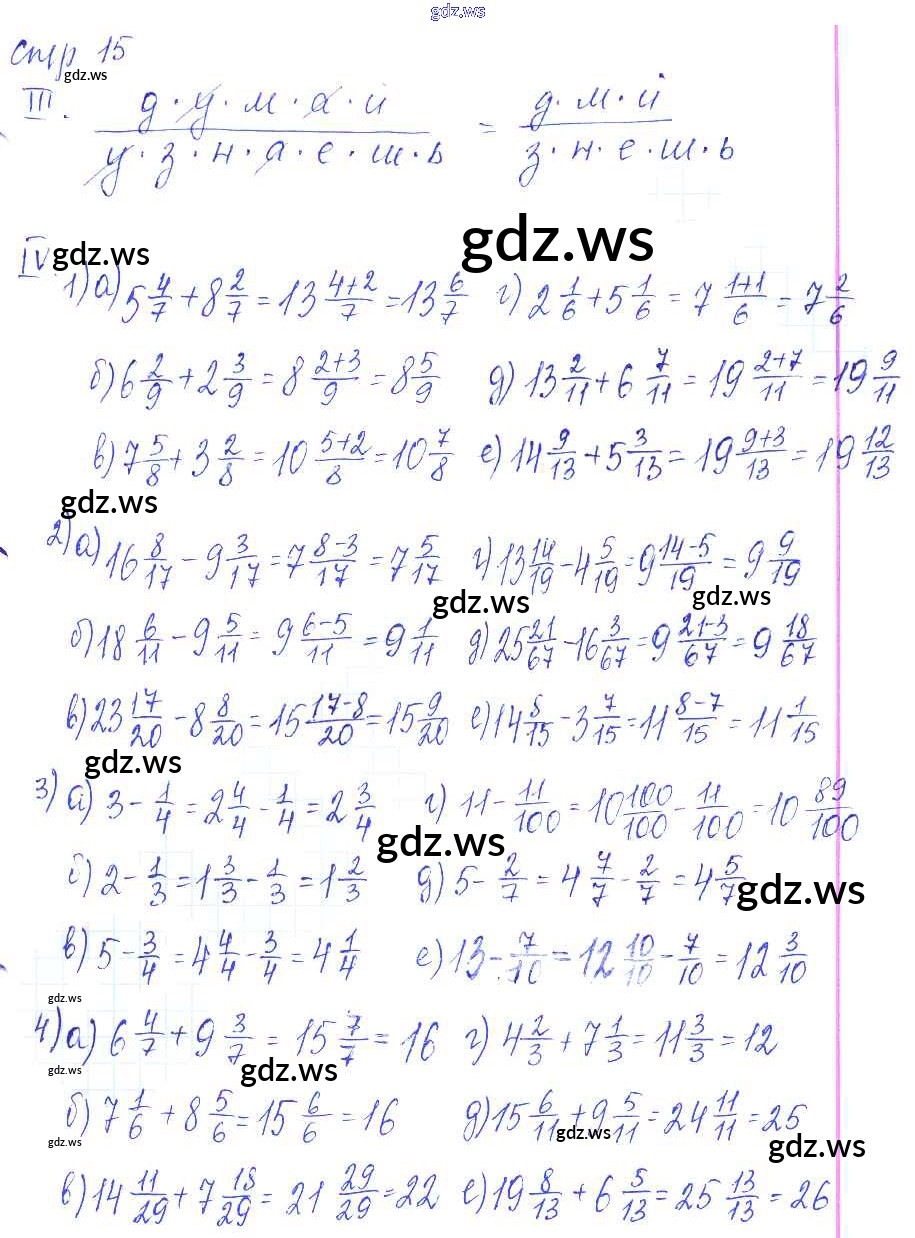 gdz.ws
стр 15
gdz.ws
III. д·у·м·а·й / у·з·н·а·е·ш·ь = д·м·й / з·н·е·ш·ь
gdz.ws
IV gdz.ws
1) а) 5 4/7 + 8 2/7 = 13 (4+2)/7 = 13 6/7 г) 2 1/6 + 5 1/6 = 7 (1+1)/6 = 7 2/6
б) 6 2/9 + 2 3/9 = 8 (2+3)/9 = 8 5/9 д) 13 2/11 + 6 7/11 = 19 (2+7)/11 = 19 9/11
в) 7 5/8 + 3 2/8 = 10 (5+2)/8 = 10 7/8 е) 14 9/13 + 5 3/13 = 19 (9+3)/13 = 19 12/13
gdz.ws
2) а) 16 8/17 - 9 3/17 = 7 (8-3)/17 = 7 5/17 г) 13 14/19 - 4 5/19 = 9 (14-5)/19 = 9 9/19
gdz.ws gdz.ws
б) 18 6/11 - 9 5/11 = 9 (6-5)/11 = 9 1/11 д) 25 21/67 - 16 3/67 = 9 (21-3)/67 = 9 18/67
в) 23 17/20 - 8 8/20 = 15 (17-8)/20 = 15 9/20 е) 14 8/15 - 3 7/15 = 11 (8-7)/15 = 11 1/15
gdz.ws
3) а) 3 - 1/4 = 2 4/4 - 1/4 = 2 3/4 г) 11 - 11/100 = 10 100/100 - 11/100 = 10 89/100
gdz.ws
б) 2 - 1/3 = 1 3/3 - 1/3 = 1 2/3 д) 5 - 2/7 = 4 7/7 - 2/7 = 4 5/7
gdz.ws
в) 5 - 3/4 = 4 4/4 - 3/4 = 4 1/4 е) 13 - 7/10 = 12 10/10 - 7/10 = 12 3/10
gdz.ws
4) а) 6 4/7 + 9 3/7 = 15 7/7 = 16 г) 4 2/3 + 7 1/3 = 11 3/3 = 12
gdz.ws gdz.ws
б) 7 1/6 + 8 5/6 = 15 6/6 = 16 д) 15 6/11 + 9 5/11 = 24 11/11 = 25
gdz.ws gdz.ws gdz.ws
в) 14 11/29 + 7 18/29 = 21 29/29 = 22 е) 19 8/13 + 6 5/13 = 25 13/13 = 26